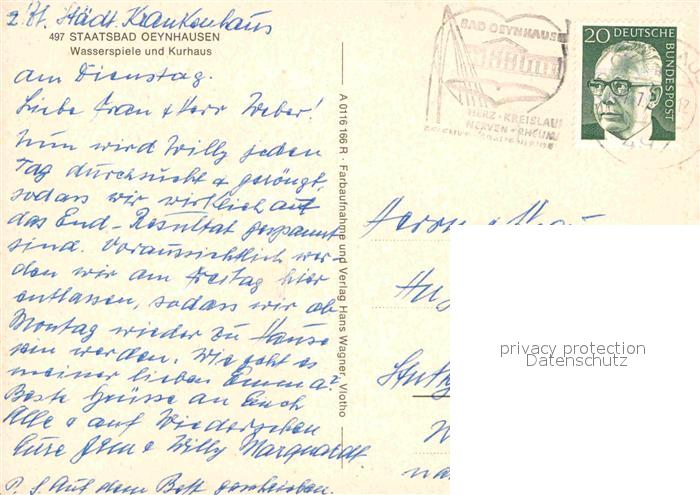 z.Zt. Städt. Krankenhaus
497 STAATSBAD OEYNHAUSEN
Wasserspiele und Kurhaus
am Dienstag.
Liebe Frau & Herr Weber!
Nun wird Willy jeden
Tag durchsucht & geröngt,
sodass wir wirklich auf
das End-Resultat gespannt
sind. Voraussichtlich wer
den wir am Freitag hier
entlassen, sodass wir ab
Montag wieder zu Hause
sein werden. Wie geht es
meiner lieben Emma?
Beste Grüsse an Euch
Alle & auf Wiedersehen
Eure & Willy Marquardt.
P.S. Auf dem Bett geschrieben.
A 0116 166 R · Farbaufnahme und Verlag Hans Wagner, Vlotho
BAD OEYNHAUSEN
HERZ · KREISLAUF
NERVEN · RHEUMA
20 DEUTSCHE
BUNDESPOST
497
Herrn &
Stuttg
privacy protection
Datenschutz